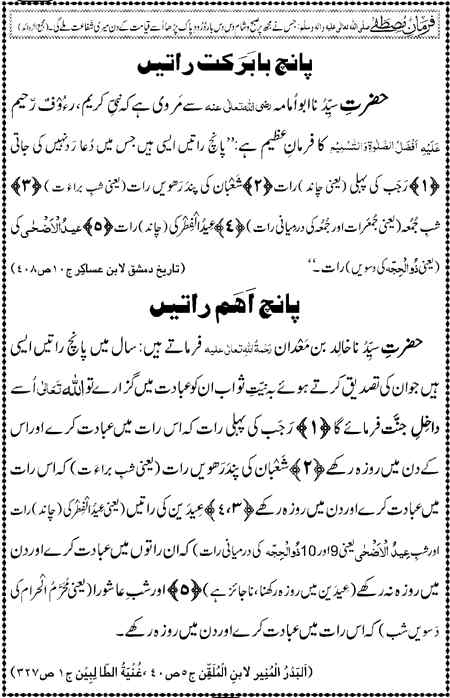 فرمانِ مصطفٰے صلی اللہ تعالی علیہ والہ وسلم: جس نے مجھ پر صبح و شام دس دس بار دُرُود پاک پڑھا اُسے قیامت کے دن میری شفاعت ملے گی۔ (مجمع الزوائد)
پانچ بابَرَکت راتیں
حضرتِ سیِّدُنا ابو اُمامہ رضی اللہ تعالیٰ عنہ سے مَروی ہے کہ نبیِّ کریم، رءُوْفٌ رَّحیم
عَلَیْہِ اَفْضَلُ الصَّلٰوۃِ وَالتَّسْلِیْم کا فرمانِ عظیم ہے: ''پانچ راتیں ایسی ہیں جس میں دُعا رَد نہیں کی جاتی
﴿۱﴾ رَجَب کی پہلی (یعنی چاند) رات ﴿۲﴾ شَعْبان کی پندرَھویں رات (یعنی شبِ براءَت) ﴿۳﴾
شبِ جُمُعہ (یعنی جُمعرات اور جُمُعہ کی درمیانی رات) ﴿۴﴾ عِیدُ الْفِطْر کی (چاند) رات ﴿۵﴾ عِیدُ الْاَضْحٰی کی
(یعنی ذُوالْحِجّہ کی دسویں) رات۔'' (تاریخ دمشق لابن عساکر ج۱۰ ص۴۰۸)
پانچ اَھَم راتیں
حضرتِ سیِّدُنا خالِد بن مَعْدان رَحْمَۃُ اللہِ تعالیٰ علیہ فرماتے ہیں: سال میں پانچ راتیں ایسی
ہیں جو ان کی تصدیق کرتے ہوئے بہ نیّتِ ثواب ان کو عبادت میں گزارے تو اللہ تَعَالٰی اُسے
داخِلِ جنّت فرمائے گا ﴿۱﴾ رَجَب کی پہلی رات کہ اس رات میں عبادت کرے اور اس
کے دن میں روزہ رکھے ﴿۲﴾ شَعْبان کی پندرَھویں رات (یعنی شبِ براءَت) کہ اس رات
میں عبادت کرے اور دن میں روزہ رکھے ﴿۳،۴﴾ عِیدَین کی راتیں (یعنی عِیدُ الْفِطْر کی (چاند) رات
اور شبِ عِیدُ الْاَضْحٰی یعنی 9 اور 10 ذُوالْحِجّہ کی درمیانی رات) کہ ان راتوں میں عبادت کرے اور دن
میں روزہ نہ رکھے (عِیدَین میں روزہ رکھنا، ناجائز ہے) ﴿۵﴾ اور شبِ عاشورا (یعنی مُحَرَّمُ الْحرام کی
دَسویں شب) کہ اس رات میں عبادت کرے اور دن میں روزہ رکھے۔
(اَلْبَدْرُ الْمُنِیر لابنِ الْمُلَقِّن ج۵ ص۴۰، غُنْیَۃُ الطَّالِبِیْن ج۱ ص۳۲۷)